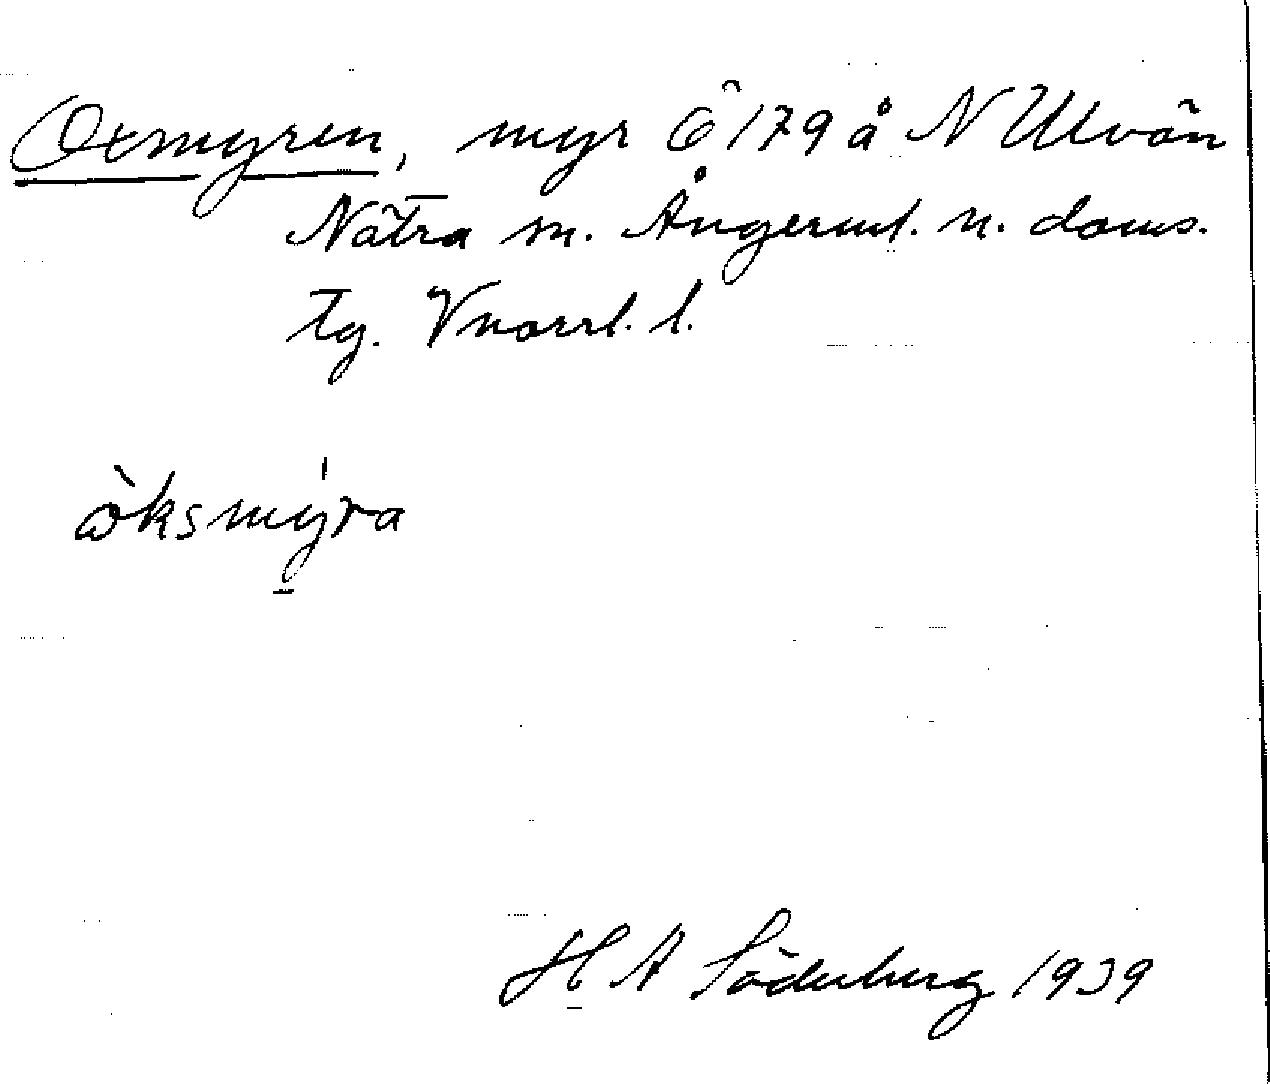 Oxmyren, myr Ö 179 å N Ulvön
Nätra sn. Ångerml. n. doms.
tg. Vnorrl. l.
òksmy̠'ra
H A Söderberg 1939